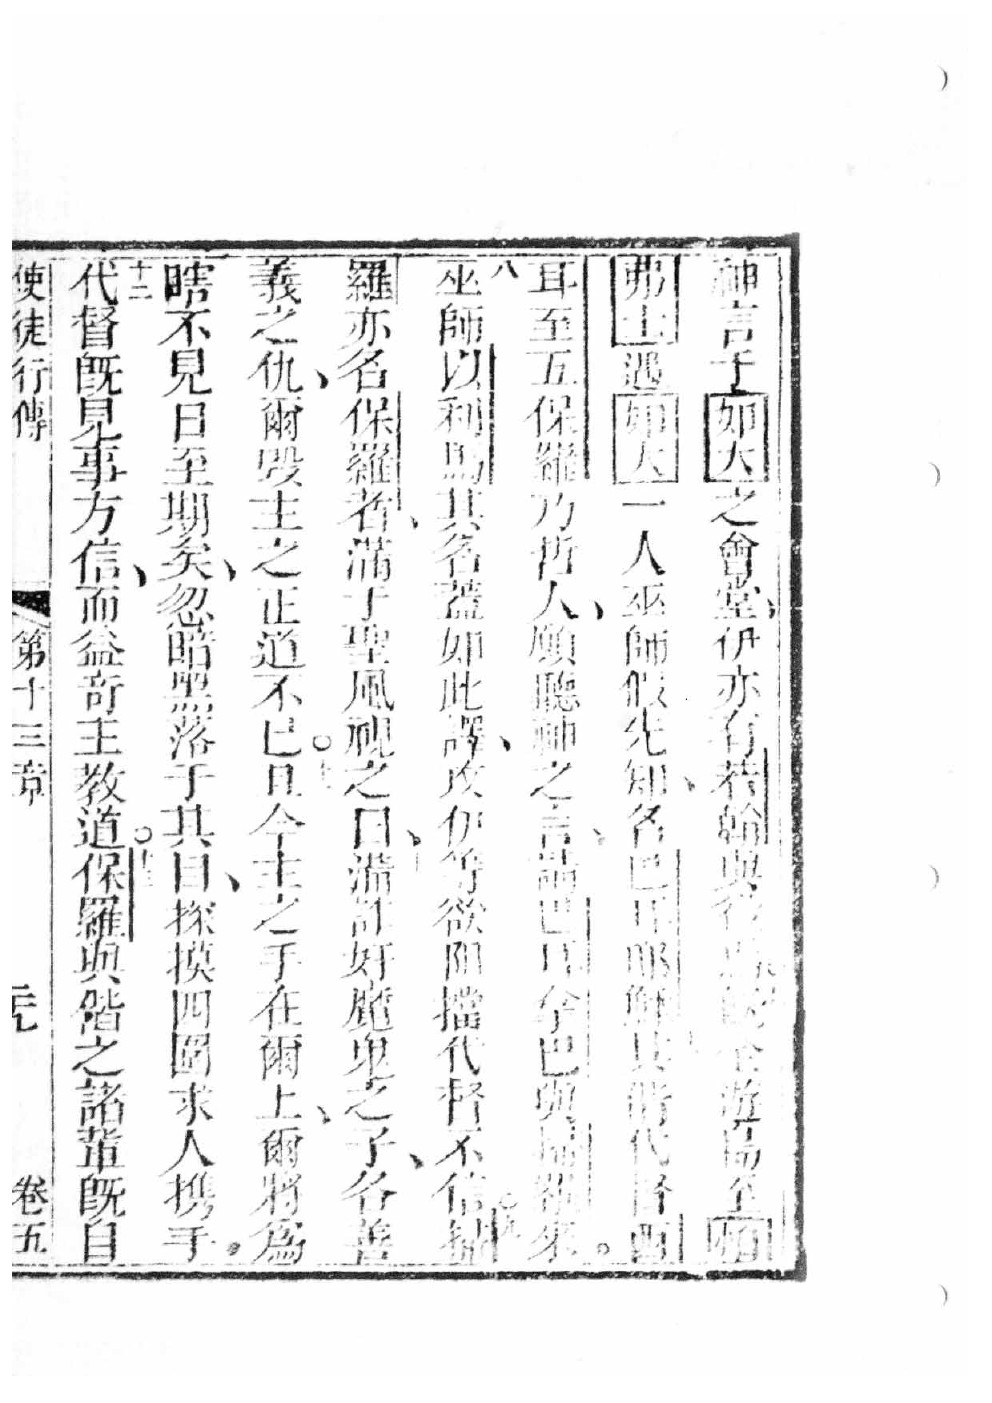 神言于如大之會堂伊亦有若翰與役游島至帕
弗士遇如大一人巫師假先知名巴耳耶穌其偕代督西
耳至五保羅乃哲人願聽神之言請巴耳拿巴與掃羅來
八
巫師以利馬其名蓋如此譯攻伊等欲阻擋代督不信掃
羅亦名保羅者滿于聖風視之曰滿詐奸魔鬼之子各善
義之仇爾毀主之正道不已且今主之手在爾上爾將為
瞎不見日至期矣忽暗黑落于其目探摸四圍求人携手
十二
代督既見事方信而益奇主教道保羅與偕之諸輩既自
使徒行傳 第十三章 元 卷五